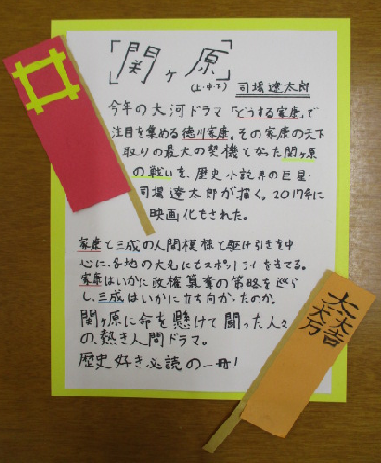 「関ヶ原」
(上・中・下) 司馬遼太郎
今年の大河ドラマ「どうする家康」で
注目を集める徳川家康。その家康の天下
取りの最大の契機となった関ヶ原
の戦いを、歴史小説界の巨星・
司馬遼太郎が描く。2017年に
映画化もされた。
家康と三成の人間模様と駆け引きを中
心に、各地の大名にもスポットライトを当てる。
家康はいかに政権奪取の策略を巡ら
し、三成はいかに立ち向かったのか。
関ヶ原に命を懸けて闘った人々
の、熱き人間ドラマ。
歴史好き必読の一冊!
大一大万大吉